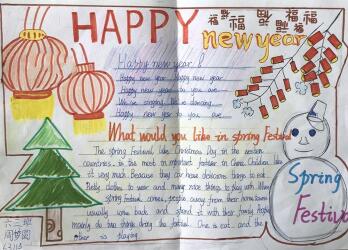 HAPPY
福 福 福 福 福
new year
Happy new year!
Happy new year Happy new year
Happy new year to you are
We are singing We're dancing
Happy new year to you are
What would you like in spring Festival
The spring Festival, like Christmas Day in the western
countries, is the most important festival in China. Children like
it very much. Because they can have delicious things to eat.
Pretty clothes to wear and many nice things to play with. When
spring Festival comes, people away from their home towns
usually come back and spend it with their family.
mainly do two things during the festival. One is eat and the
other is playing.
Spring
Festival
六三班